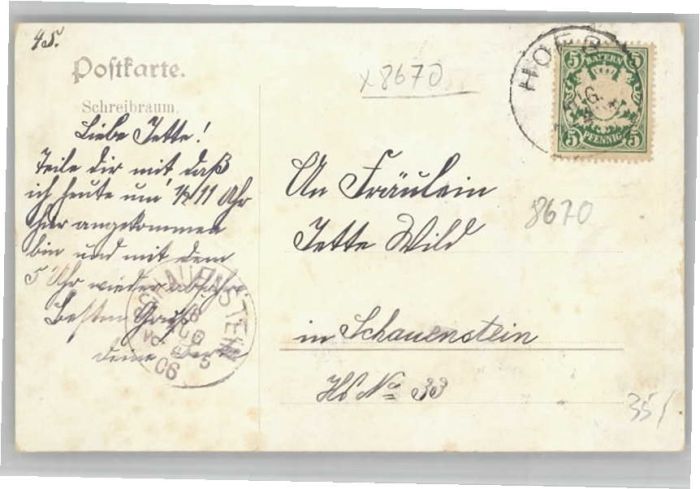 45.
Postkarte.
Schreibraum.
Liebe Tette!
Teile dir mit, daß
ich heute um 1/2 11 Uhr
hier angekommen
bin und mit dem
5 Uhr wieder
Besten Gruß
deine
x 8670
HOF
5 BAYERN 5
5 PFENNIG 5
An Fräulein
Tette Wild
8670
in Schauenstein
Hs No 33
35/
SCHAUENSTEIN
06